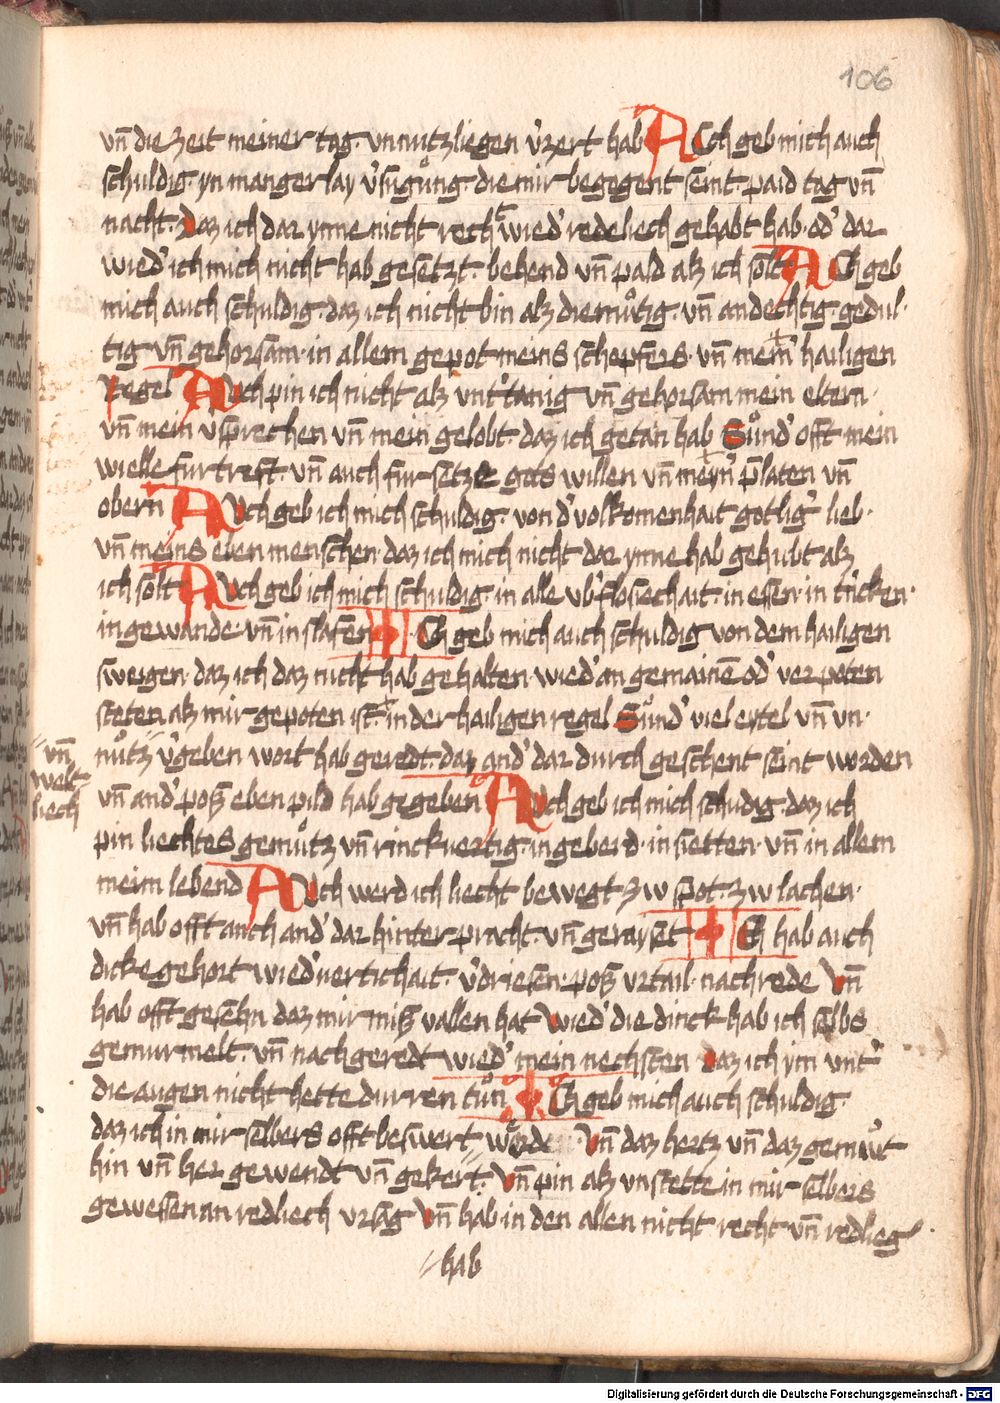 106
vn̄ die zeit meiner tag. vnnutzliegen v̓zert hab AVch geb mich auch
schuldig. yn mangerlay v̓sugu̇ng. die mir begegent seint. paid tag vn̄
nacht. Daz ich dar ynne nicht rech wied̓ redeliech gehabt hab. od̓ dar
wied̓ ich mich nicht hab gesetzt. behend vn̄ pald alz ich solt AVch geb
mich auch schuldig. daz ich nicht bin alz diemu̇tig. vn̄ andechtig. gedul-
tig vn̄ gehorsam. in allem gepot meins schepfers. vn̄ mein̄ hailigen
Regel AVch pin ich nicht alz vnt̓tanig vn̄ gehorsam mein eltern.
vn̄ mein v̓sprechen vn̄ mein gelobt. daz ich getan hab Su̇nd̓ offt mein
wielle furtreft. vn̄ auch fursetze gots willen vn̄ meyn̄ p̄laten vn̄
obern AVch geb ich mich schuldig. von d̓ volkomenhait gotlig̓ lieb.
vn̄ meins eben menschen. daz ich mich nicht dar ynne hab gehubt alz
ich solt AVch geb ich mich schuldig. in alle vb̓flosechait. in essen. in tricken.
in gewande. vn̄ in slafen ICh geb mich auch schuldig von dem hailigen
sweigen. daz ich daz nicht hab gehalten. wied̓ an gemainē od̓ verpoten
steten alz mir gepoten ist. in der hailigen regel Su̇nd̓ viel eytel vn̄ vn-
nu̇tz v̓geben wort hab geredt. daz and̓ dar durch geschent seint worden
vn̄ weltliech
vn̄ and̓ poß eben pild hab gegeben AVch geb ich mich schudig. daz ich
pin liechtes gemu̇tz vn̄ rinckuertig. in geberd. in sietten. vn̄ in allem
meim lebend AVch werd ich liecht bewegt zw spot. zw lachen.
vn̄ hab offt auch and̓ dar hinter pracht. vn̄ gerayset ICh hab auch
dicke gehort wied̓uertichait. v̓driesen. poß vrtail. nachrede Vn̄
hab offt gesehn daz mir miß vallen hat Wied̓ die dinck hab ich selbs
gemurmelt. vn̄ nach geredt wied̓ mein nechsten Daz ich ym vnt̓
die augen nicht hette durren tu̇n ICh geb mich auch schuldig.
daz ich in mir selbers offt beswert Vn̄ daz hertz vn̄ daz gemu̇t
hin vn̄ her gewendt vn̄ gekert. Vn̄ pin alz vnstette in mir selbers
gewessen an redliech vrsag Vn̄ hab in den allen nicht recht vn̄ redlieg
hab
Digitalisierung gefördert durch die Deutsche Forschungsgemeinschaft - DFG